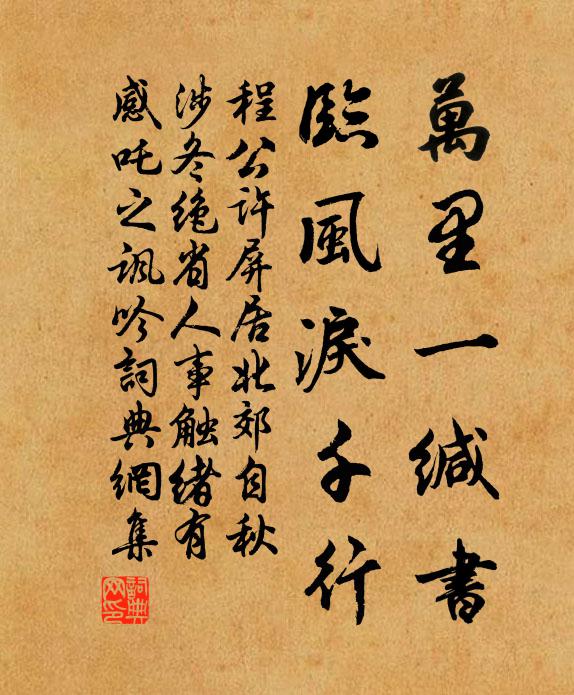 萬里一緘書
臨風淚千行
程公許屏居北郊自秋
涉冬絕省人事触緒有
感吒之諷吟詞典網集
詞典
网印